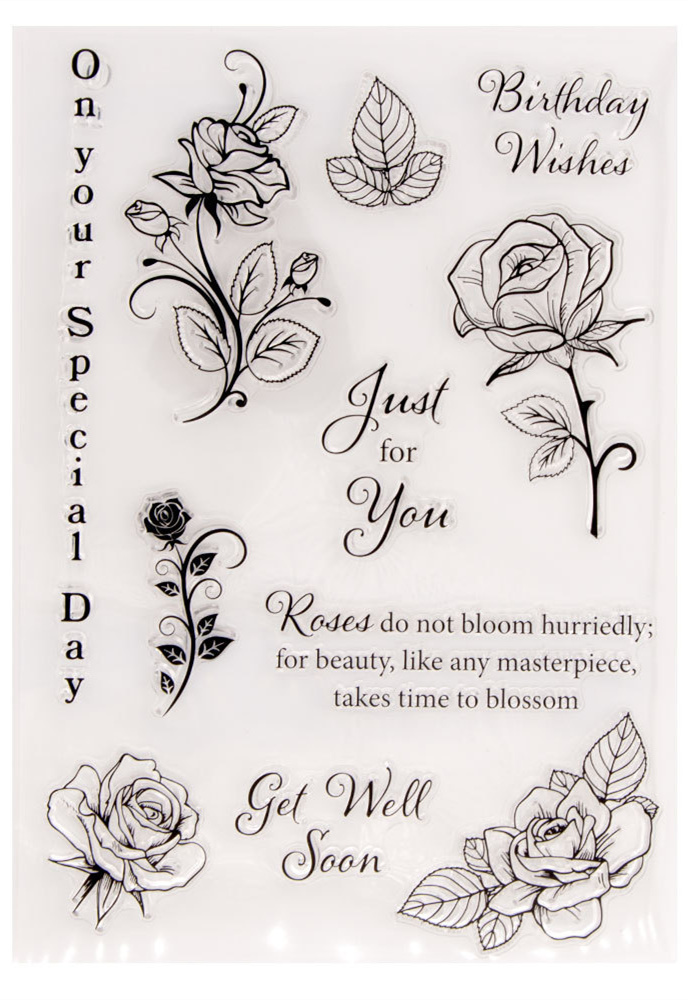 On your Special Day
Birthday
Wishes
Just
for
You
Roses do not bloom hurriedly;
for beauty, like any masterpiece,
takes time to blossom
Get Well
Soon